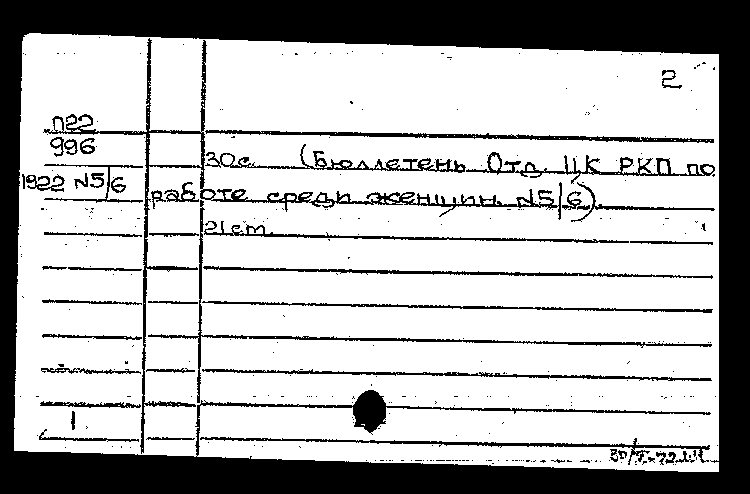 2
П22
996
30с. (Бюллетень Отд. ЦК РКП по
1922 №5/6 работе среди женщин. №5/6).
21см.
1